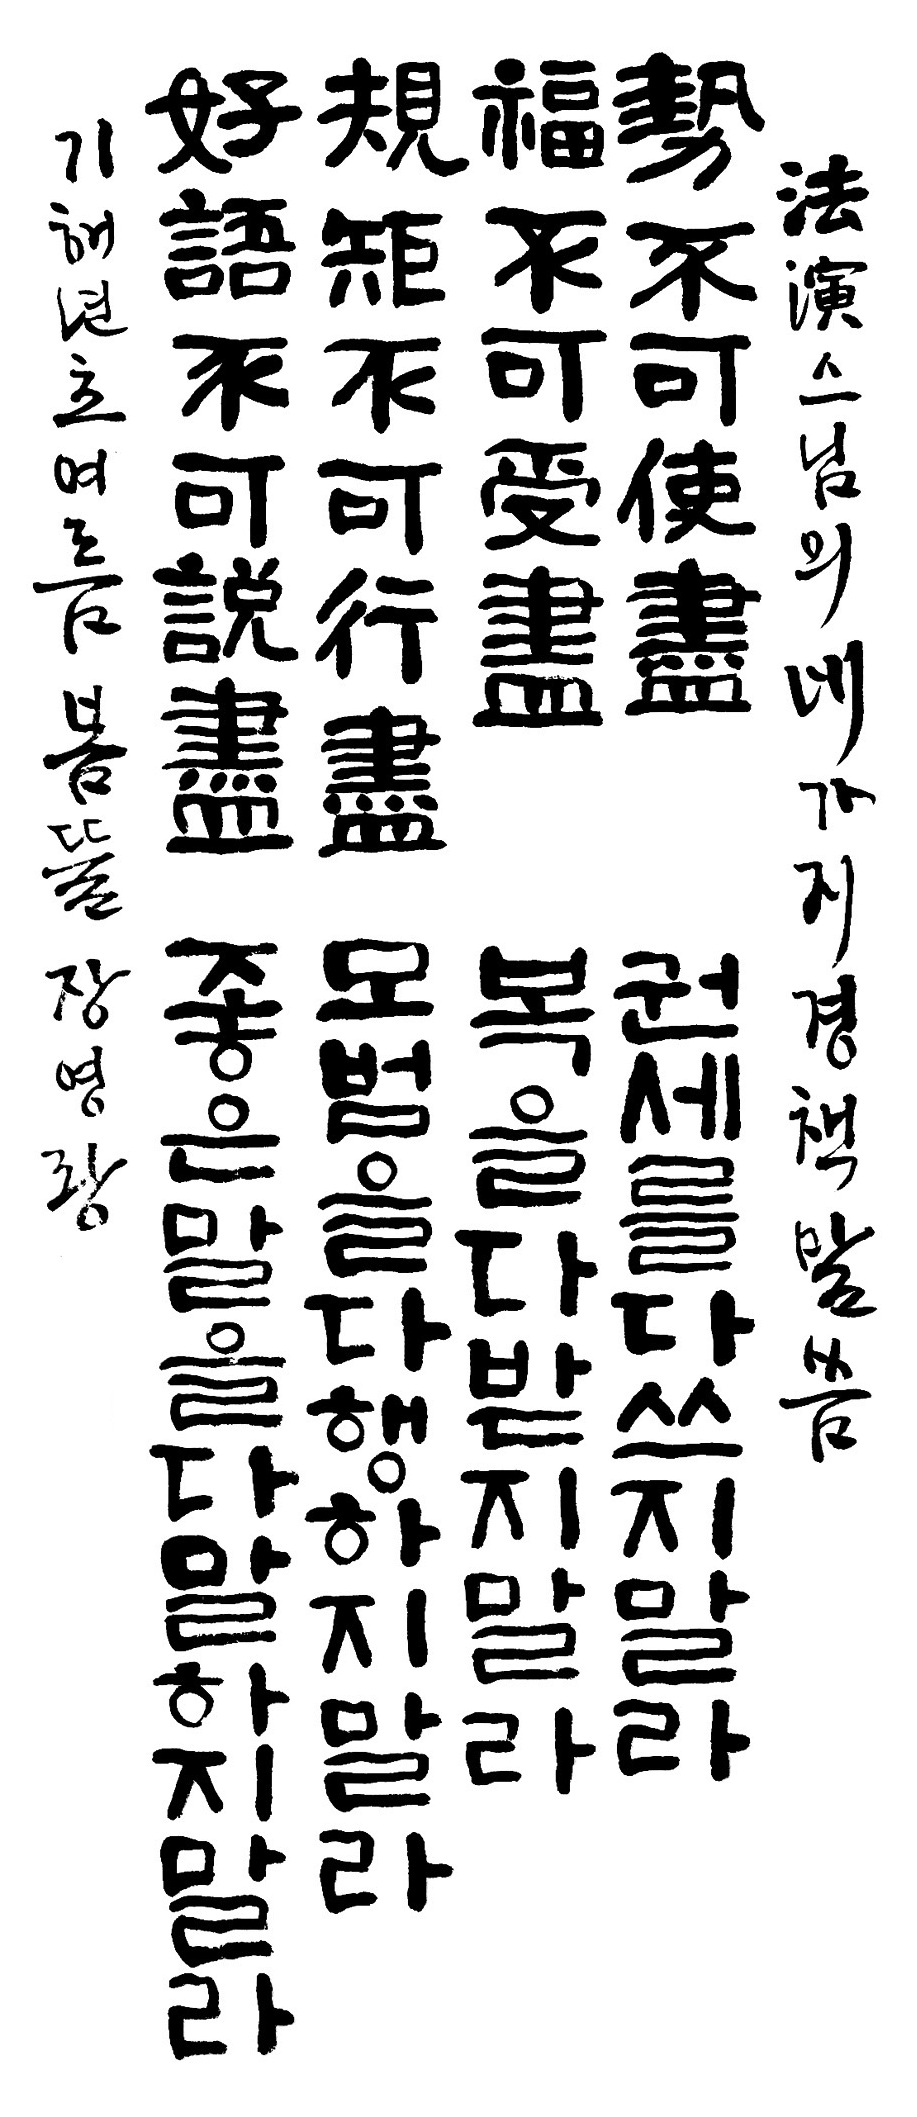 法演스님의 네가지 경책 말씀
勢不可使盡 권세를 다 쓰지 말라
福不可受盡 복을 다 받지 말라
規矩不可行盡 모범을 다 행하지 말라
好語不可說盡 좋은 말을 다 말하지 말라
기해년 초여름 봄뜰 장영랑